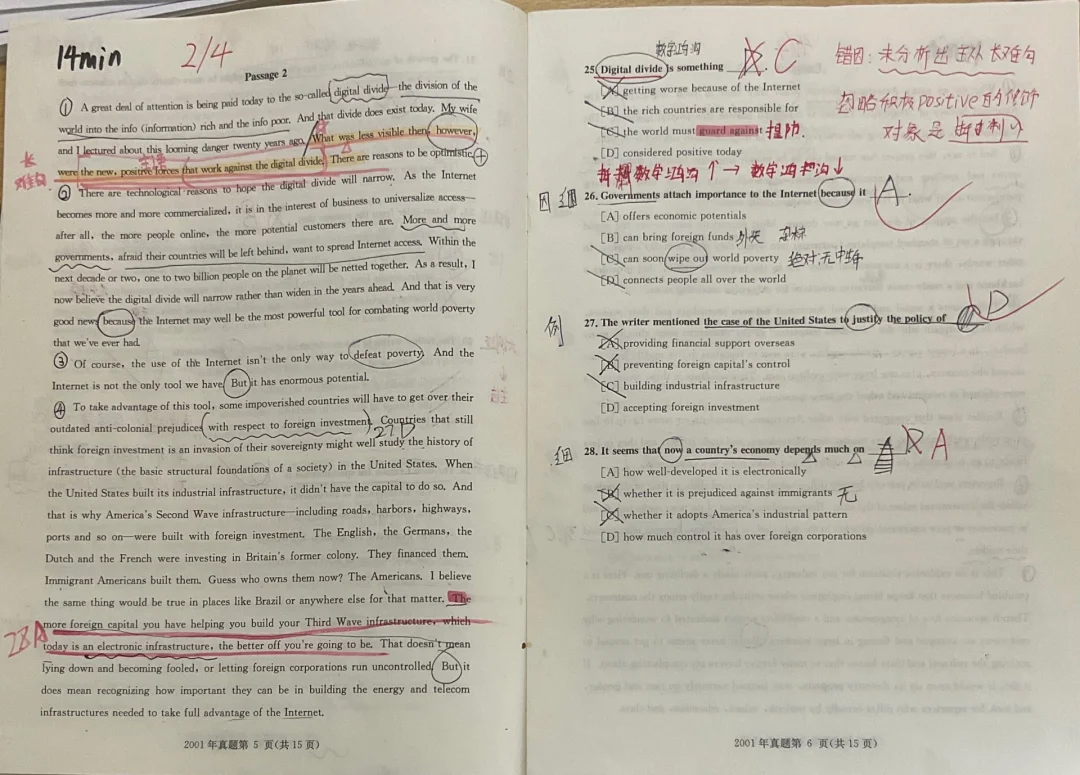 14min
2/4
Passage 2
① A great deal of attention is being paid today to the so-called digital divide—the division of the
world into the info (information) rich and the info poor. And that divide does exist today. My wife
and I lectured about this looming danger twenty years ago. What was less visible then, however,
were the new, positive forces that work against the digital divide. There are reasons to be optimistic.
长
难句
② There are technological reasons to hope the digital divide will narrow. As the Internet
becomes more and more commercialized, it is in the interest of business to universalize access—
after all, the more people online, the more potential customers there are. More and more
governments, afraid their countries will be left behind, want to spread Internet access. Within the
next decade or two, one to two billion people on the planet will be netted together. As a result, I
now believe the digital divide will narrow rather than widen in the years ahead. And that is very
good news because the Internet may well be the most powerful tool for combating world poverty
that we've ever had.
③ Of course, the use of the Internet isn't the only way to defeat poverty. And the
Internet is not the only tool we have. But it has enormous potential.
④ To take advantage of this tool, some impoverished countries will have to get over their
outdated anti-colonial prejudices with respect to foreign investment. Countries that still
27D
think foreign investment is an invasion of their sovereignty might well study the history of
infrastructure (the basic structural foundations of a society) in the United States. When
the United States built its industrial infrastructure, it didn't have the capital to do so. And
that is why America's Second Wave infrastructure—including roads, harbors, highways,
ports and so on—were built with foreign investment. The English, the Germans, the
Dutch and the French were investing in Britain's former colony. They financed them.
Immigrant Americans built them. Guess who owns them now? The Americans. I believe
the same thing would be true in places like Brazil or anywhere else for that matter. The
more foreign capital you have helping you build your Third Wave infrastructure, which
28A
today is an electronic infrastructure, the better off you're going to be. That doesn't mean
lying down and becoming fooled, or letting foreign corporations run uncontrolled. But it
does mean recognizing how important they can be in building the energy and telecom
infrastructures needed to take full advantage of the Internet.
2001年真题第 5 页(共15页)
数字鸿沟
25. Digital divide is something C
[A] getting worse because of the Internet
[B] the rich countries are responsible for
[C] the world must guard against 提防
[D] considered positive today
错因: 未分析出主从 长难句
忽略积极positive的修饰
对象是
数字鸿沟↑→数字鸿沟↓
因 细 26. Governments attach importance to the Internet because it A.
[A] offers economic potentials
[B] can bring foreign funds 外天
[C] can soon wipe out world poverty 绝对,无中生
[D] connects people all over the world
例 27. The writer mentioned the case of the United States to justify the policy of D
[A] providing financial support overseas
[B] preventing foreign capital's control
[C] building industrial infrastructure
[D] accepting foreign investment
细 28. It seems that now a country's economy depends much on A
[A] how well-developed it is electronically
[B] whether it is prejudiced against immigrants 无
[C] whether it adopts America's industrial pattern
[D] how much control it has over foreign corporations
2001年真题第 6 页(共15页)